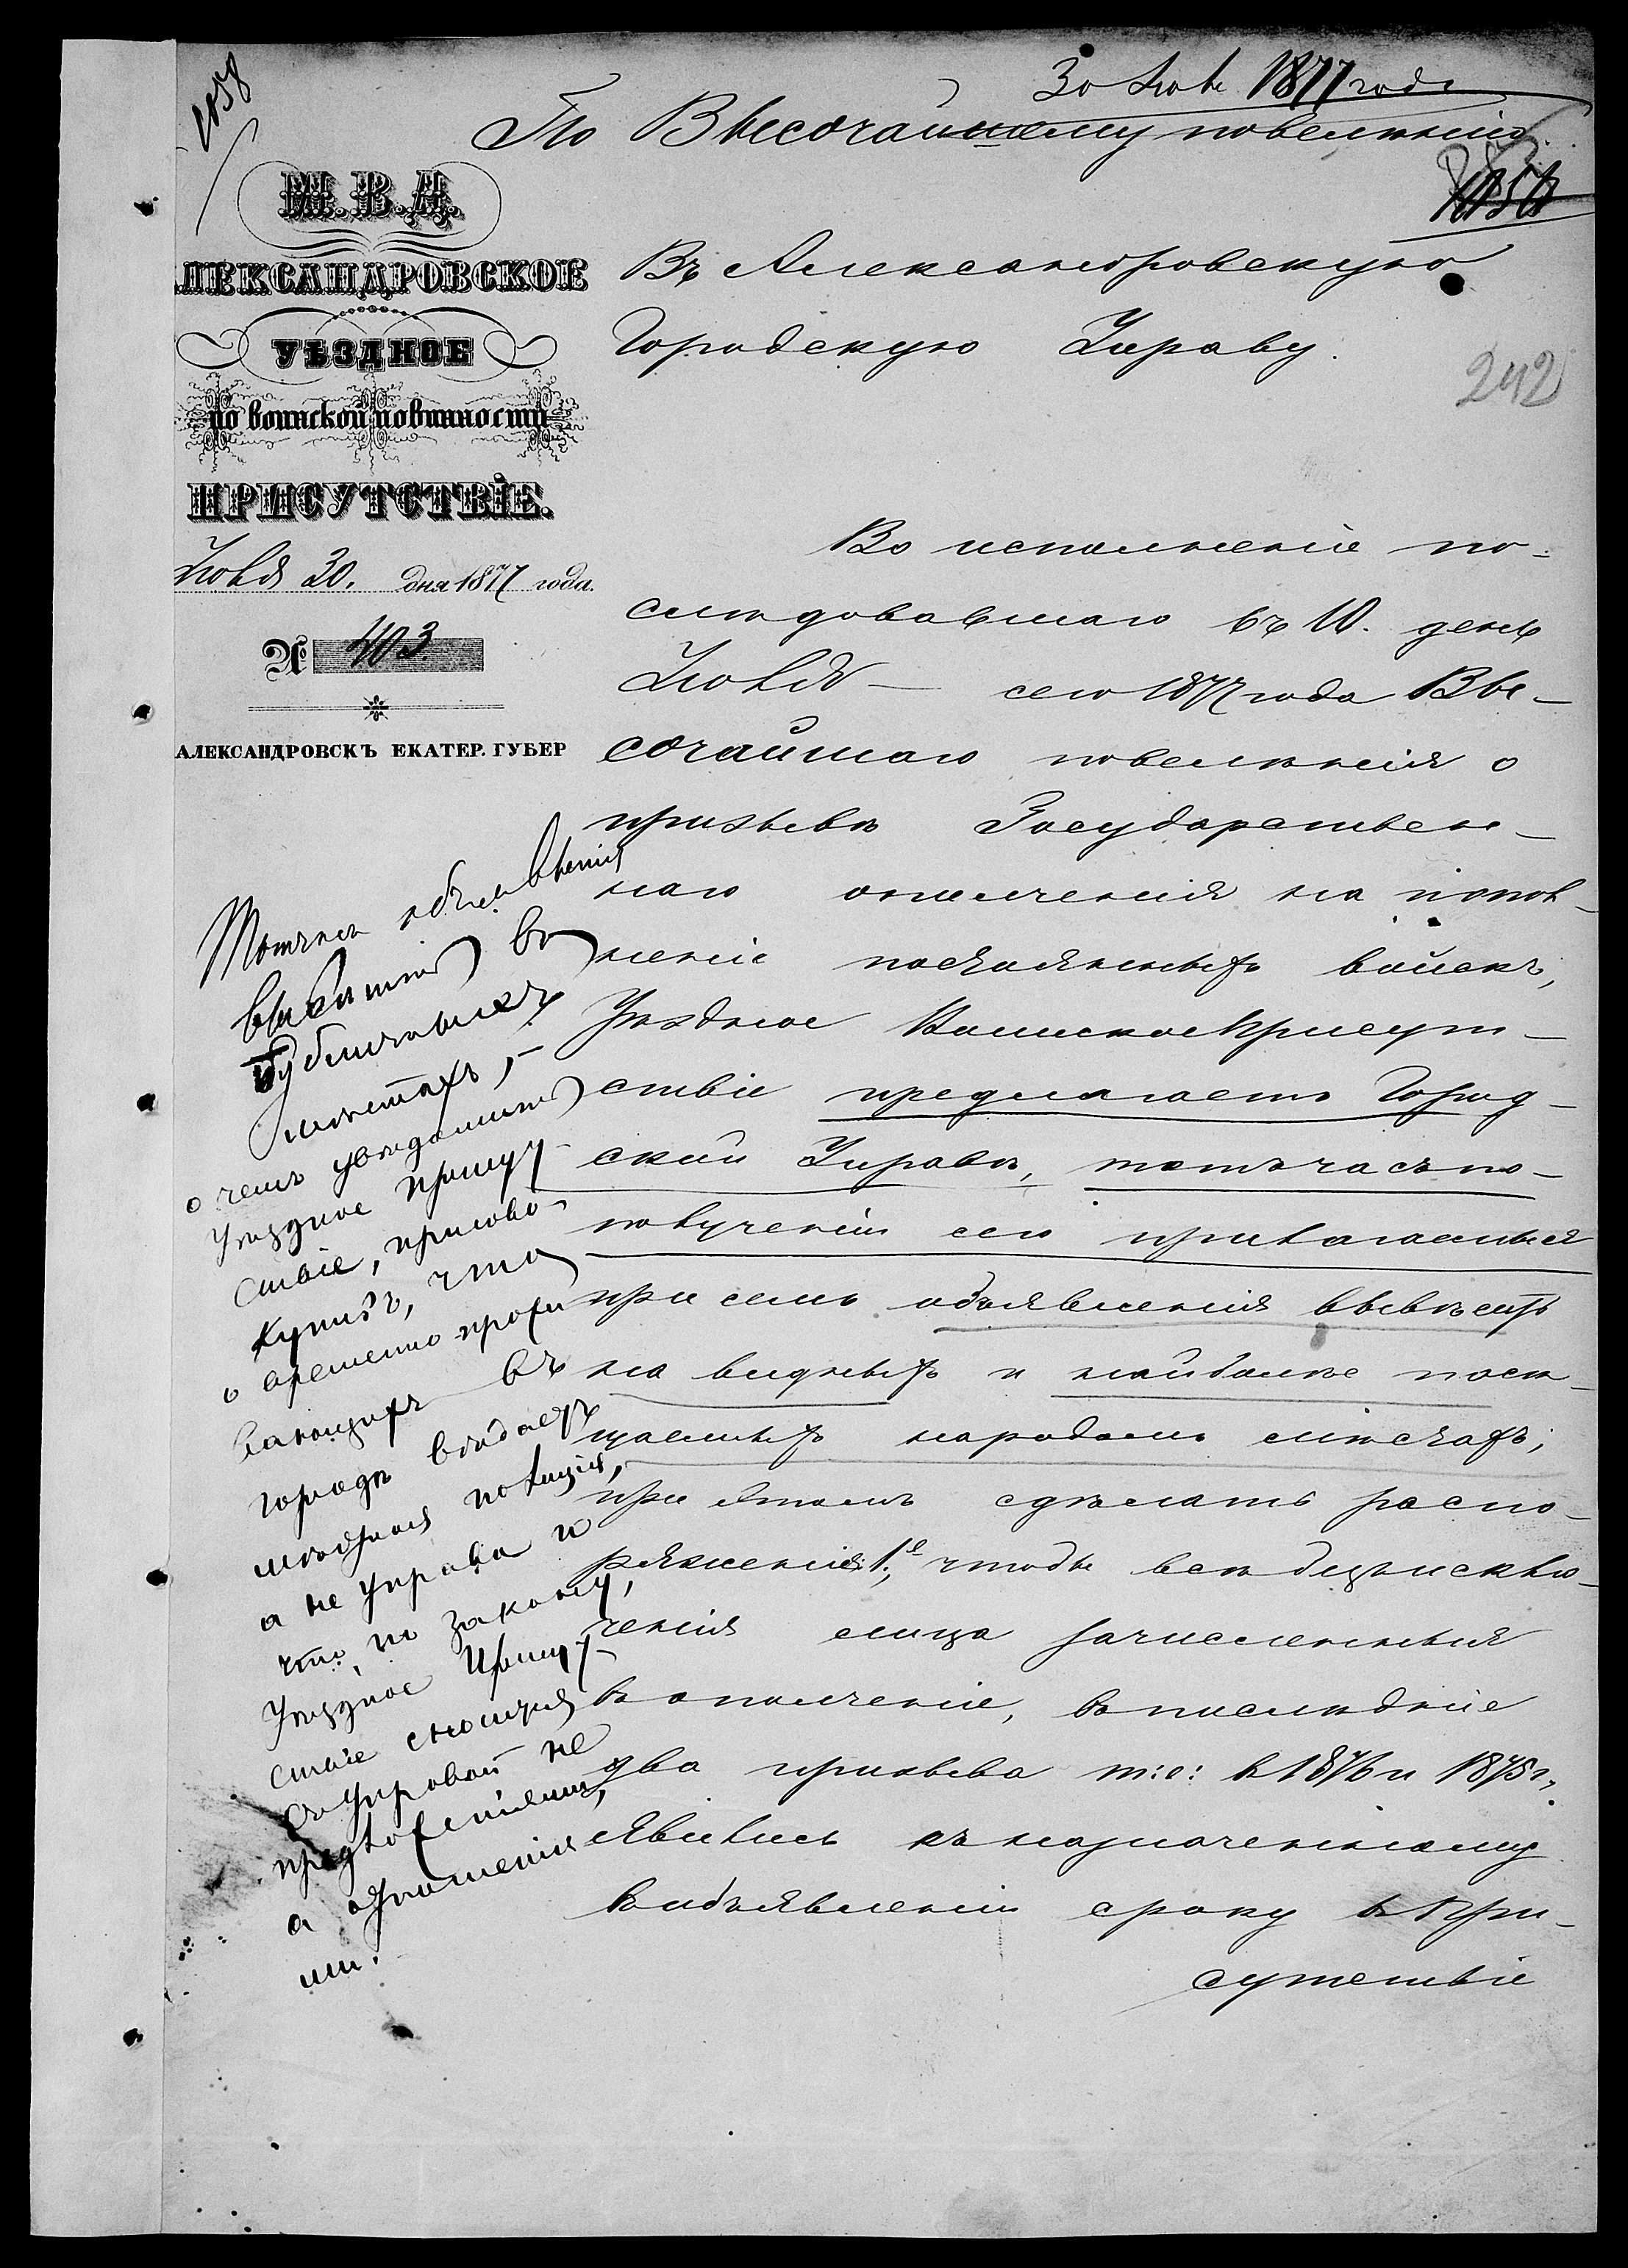 1058
30 Іюля 1877 года
По Высочайшему повелѣнію.
М. В. Д.
АЛЕКСАНДРОВСКОЕ
УѢЗДНОЕ
по воинской повинности
ПРИСУТСТВІЕ.
Іюля 30. дня 1877 года.
№ 403
АЛЕКСАНДРОВСКЪ ЕКАТЕР. ГУБЕР
Въ Александровскую
Городскую Управу.
242
Во исполненіе по-
слѣдовавшаго въ 10. день
Іюля сего 1877 года Вы-
сочайшаго повелѣнія о
призывѣ Государствен-
наго ополченія на попол-
неніе постоянныхъ войскъ,
Уѣздное Воинское Присут-
ствіе предлагаетъ Город-
ской Управѣ, тотъ часъ по
полученіи сего прилагаемыя
при семъ объявленія вывѣсить
на видныхъ и наиболѣе посѣ-
щаемыхъ народомъ мѣстахъ;
при этомъ сдѣлать распо-
ряженія: 1е, чтобы всѣ безъ исклю-
ченія лица зачисленныя
въ ополченіе, въ послѣдніе
два призыва т:е: въ 1876 и 1875 г.,
явились къ назначенному
въ объявленіи сроку въ При-
сутствіе
Тотчасъ объявленія
вывѣсить въ
публичныхъ
мѣстахъ,-
о чемъ увѣдомить
Уѣздное Присут-
ствіе, присово-
купивъ, что
о временно прожи
вающихъ въ
городѣ вѣдаетъ
мѣстная полиція,
а не Управа и
что по закону,
Уѣздное Присут-
ствіе сносится
съ Управой не
предложеніями,
а отношенія
ми.